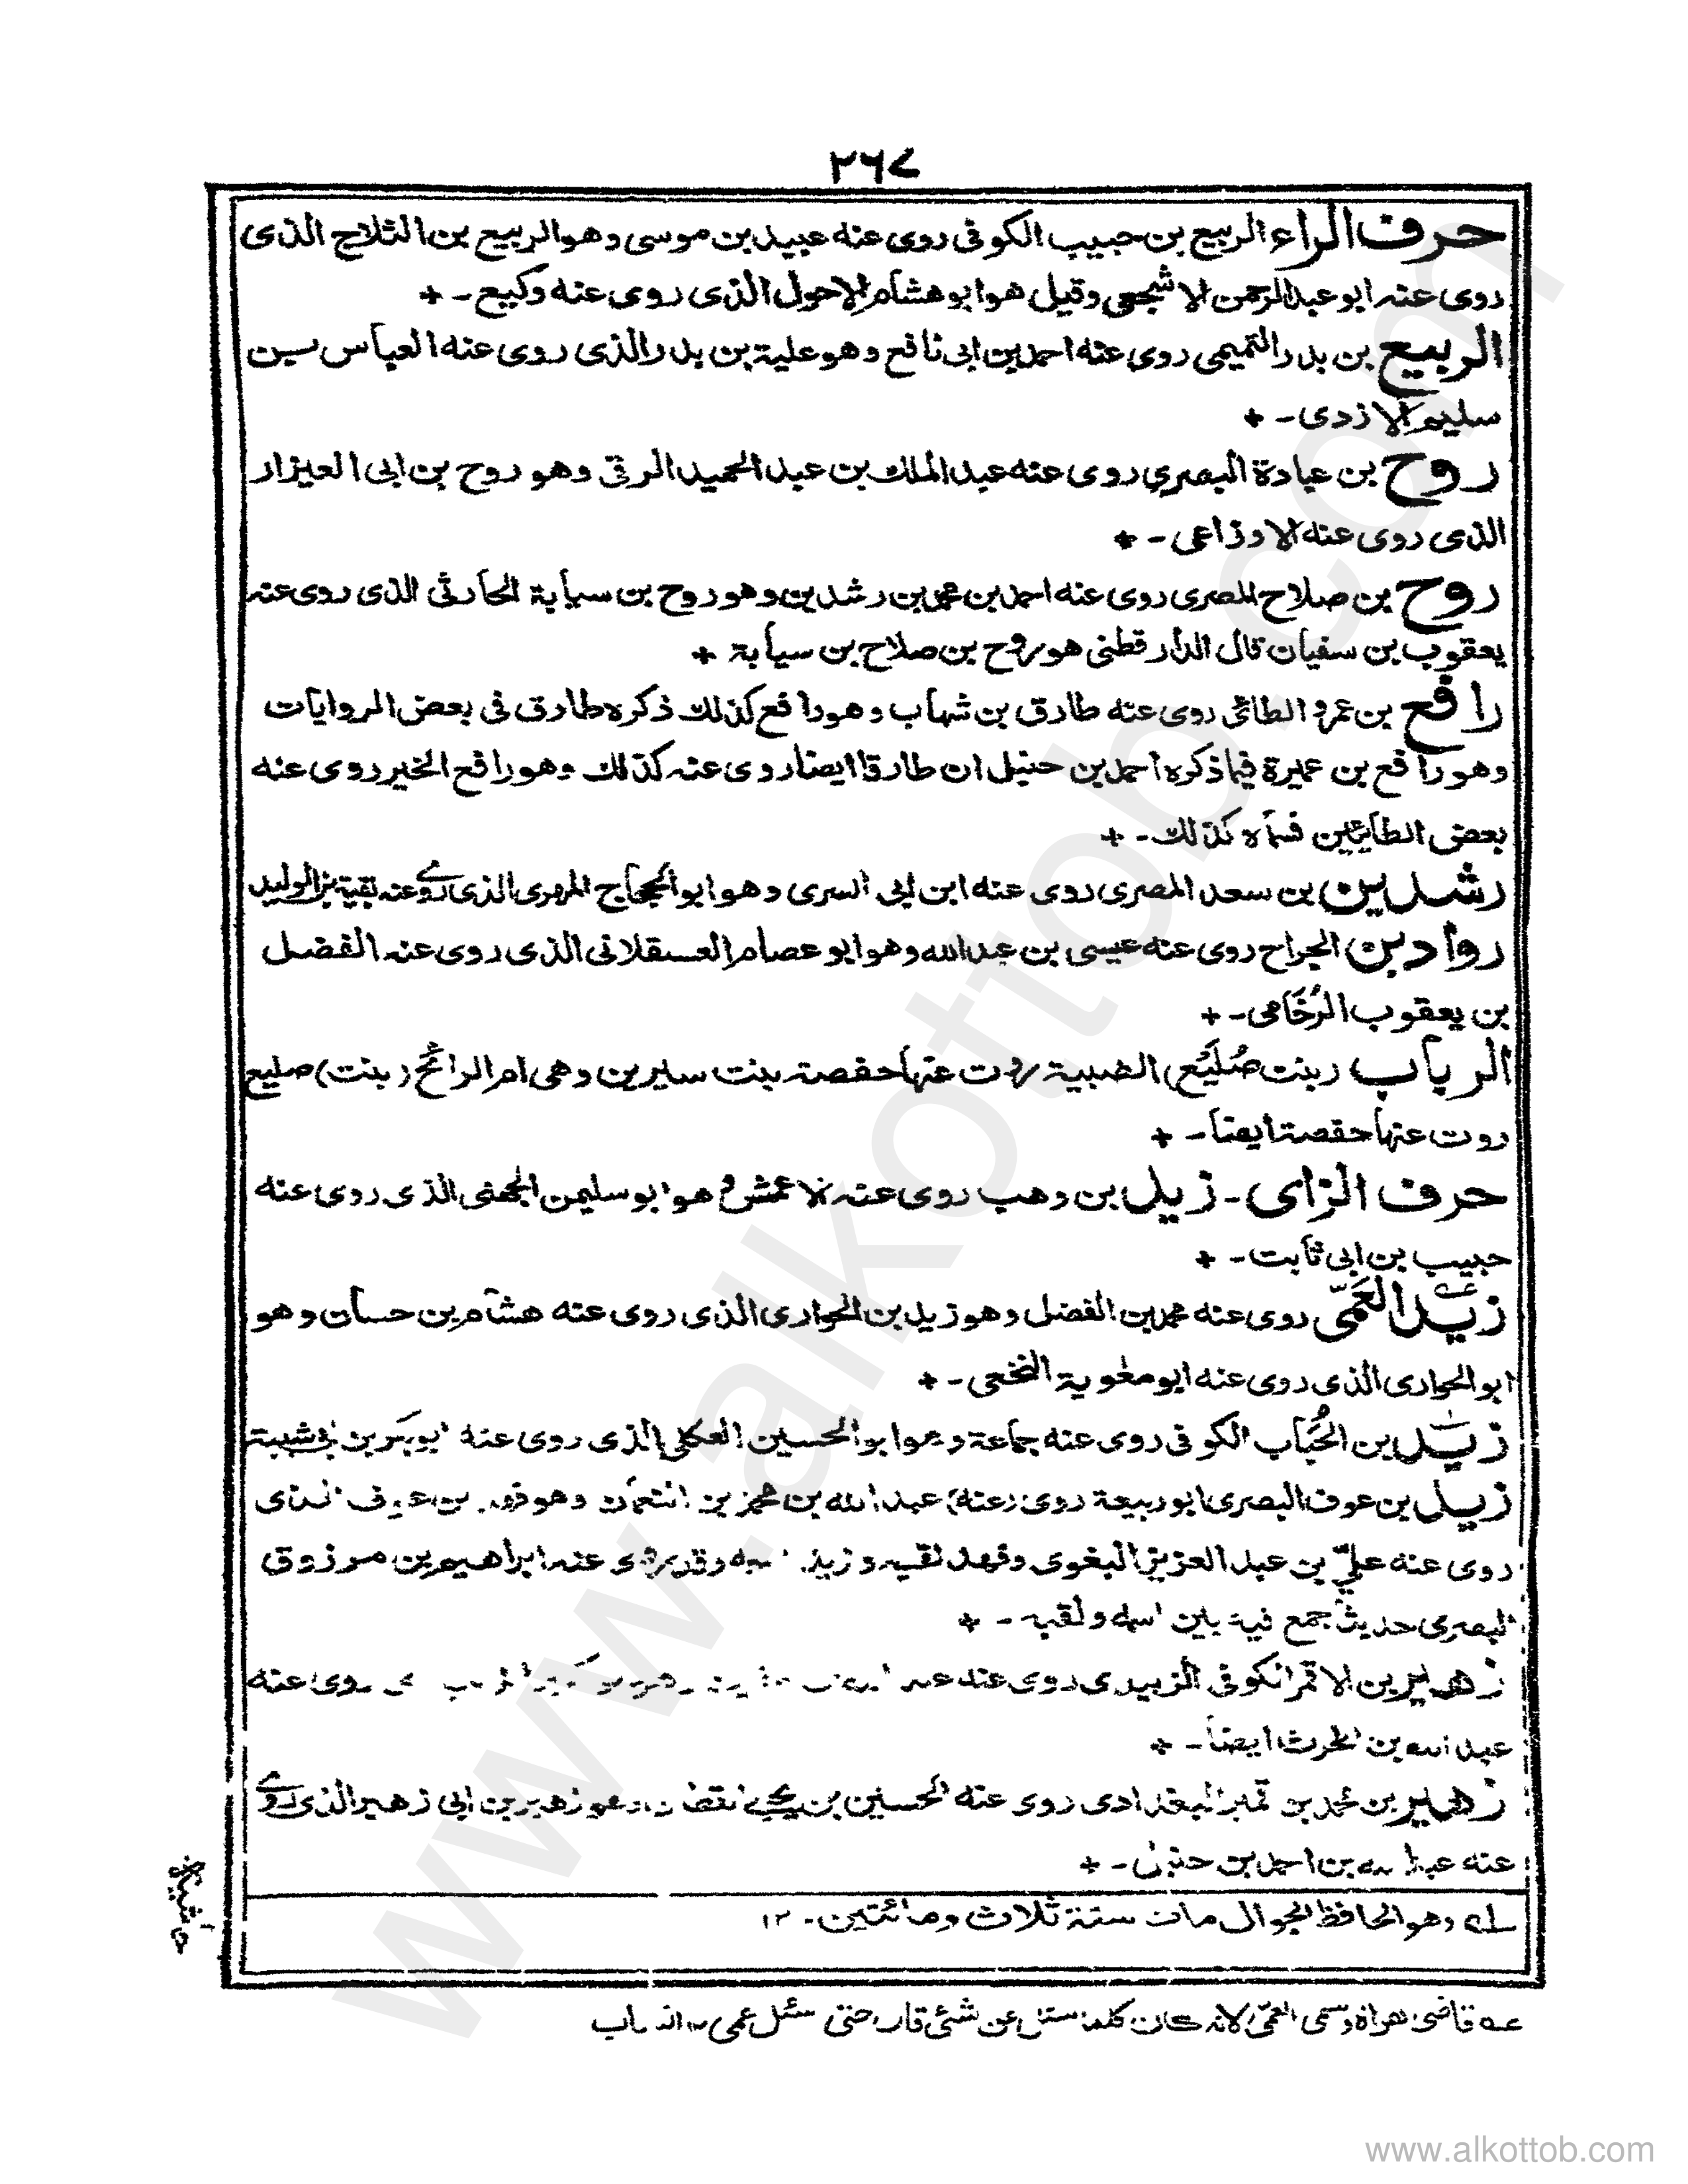 ٢٦٧
حرف الراء الربيع بن حبيب الكوفى روى عنه عبيد بن موسى وهو الربيع بن الثلاج الذى
روى عنه ابو عبد الرحمن الاشجعى وقيل هو ابو هشام الاحول الذى روى عنه وكيع - +
الربيع بن بدر التميمى روى عنه احمد بن ابى نافع وهو علية بن بدر الذى روى عنه العباس سين
سليم الازدى - +
روح بن عبادة البصرى روى عنه عبد الملك بن عبد الحميد الرقى وهو روح بن ابى العيزار
الذى روى عنه الاوزاعى - +
روح بن صلاح المصرى روى عنه احمد بن محمد بن رشدين وهو روح بن سيابة الحارثى الذى روى عنه
يعقوب بن سفيان قال الدارقطنى هو روح بن صلاح بن سيابة +
رافع بن عمرو الطائى روى عنه طارق بن شهاب وهو رافع كذلك ذكره طارق فى بعض الروايات
وهو رافع بن عميرة فيما ذكره احمد بن حنبل ان طارقا ايضا روى عنه كذلك وهو رافع الخير روى عنه
بعض الطائيين فسماه كذلك - +
رشدين بن سعد المصرى روى عنه ابن ابى السرى وهو ابو الحجاج المهرى الذى روى عنه بقية بن الوليد
رواد بن الجراح روى عنه عيسى بن عبد الله وهو ابو عصام العسقلانى الذى روى عنه الفضل
بن يعقوب الرُّخَامى - +
الرباب (بنت صُلَيْع) الضبية روت عنها حفصة بنت سيرين وهى ام الرائح (بنت) صليع
روت عنها حفصة ايضا - +
حرف الزاى - زيد بن وهب روى عنه الاعمش وهو ابو سليمن الجهنى الذى روى عنه
حبيب بن ابى ثابت - +
زيد العَمِّى روى عنه محمد بن الفضل وهو زيد بن الحوارى الذى روى عنه هشام بن حسان وهو
ابو الحوارى الذى روى عنه ابو معوية النخعى - +
زيد بن الحُبَاب الكوفى روى عنه جماعة وهو ابو الحسين العكلى الذى روى عنه ابو بكر بن ابى شيبة
زيد بن عوف البصرى ابو ربيعة روى (عنه) عبد الله بن محمد بن النعمان وهو فهد بن عوف الذى
روى عنه علىّ بن عبد العزيز البغوى وفهد لقبه وزيد اسمه وقد روى عنه ابراهيم بن مرزوق
البصرى حديثا جمع فيه بين اسمه ولقبه - +
زهير بن الاقمر الكوفى الزبيدى روى عنه عبد روى عنه
عبد الله بن الحرث ايضا - +
زهير بن محمد بن قمير البغدادى روى عنه الحسين بن يحيى وهو زهير بن ابى زهير الذى روى
عنه عبد الله بن احمد بن حنبل - +
حاشية
له وهو الحافظ الجوال مات سنة ثلاث ومائتين - ١٢
عه قاضى هراة وسمى العمّى لانه كان كلما سئل عن شئ قال حتى سئل عمى
www.alkottob.com